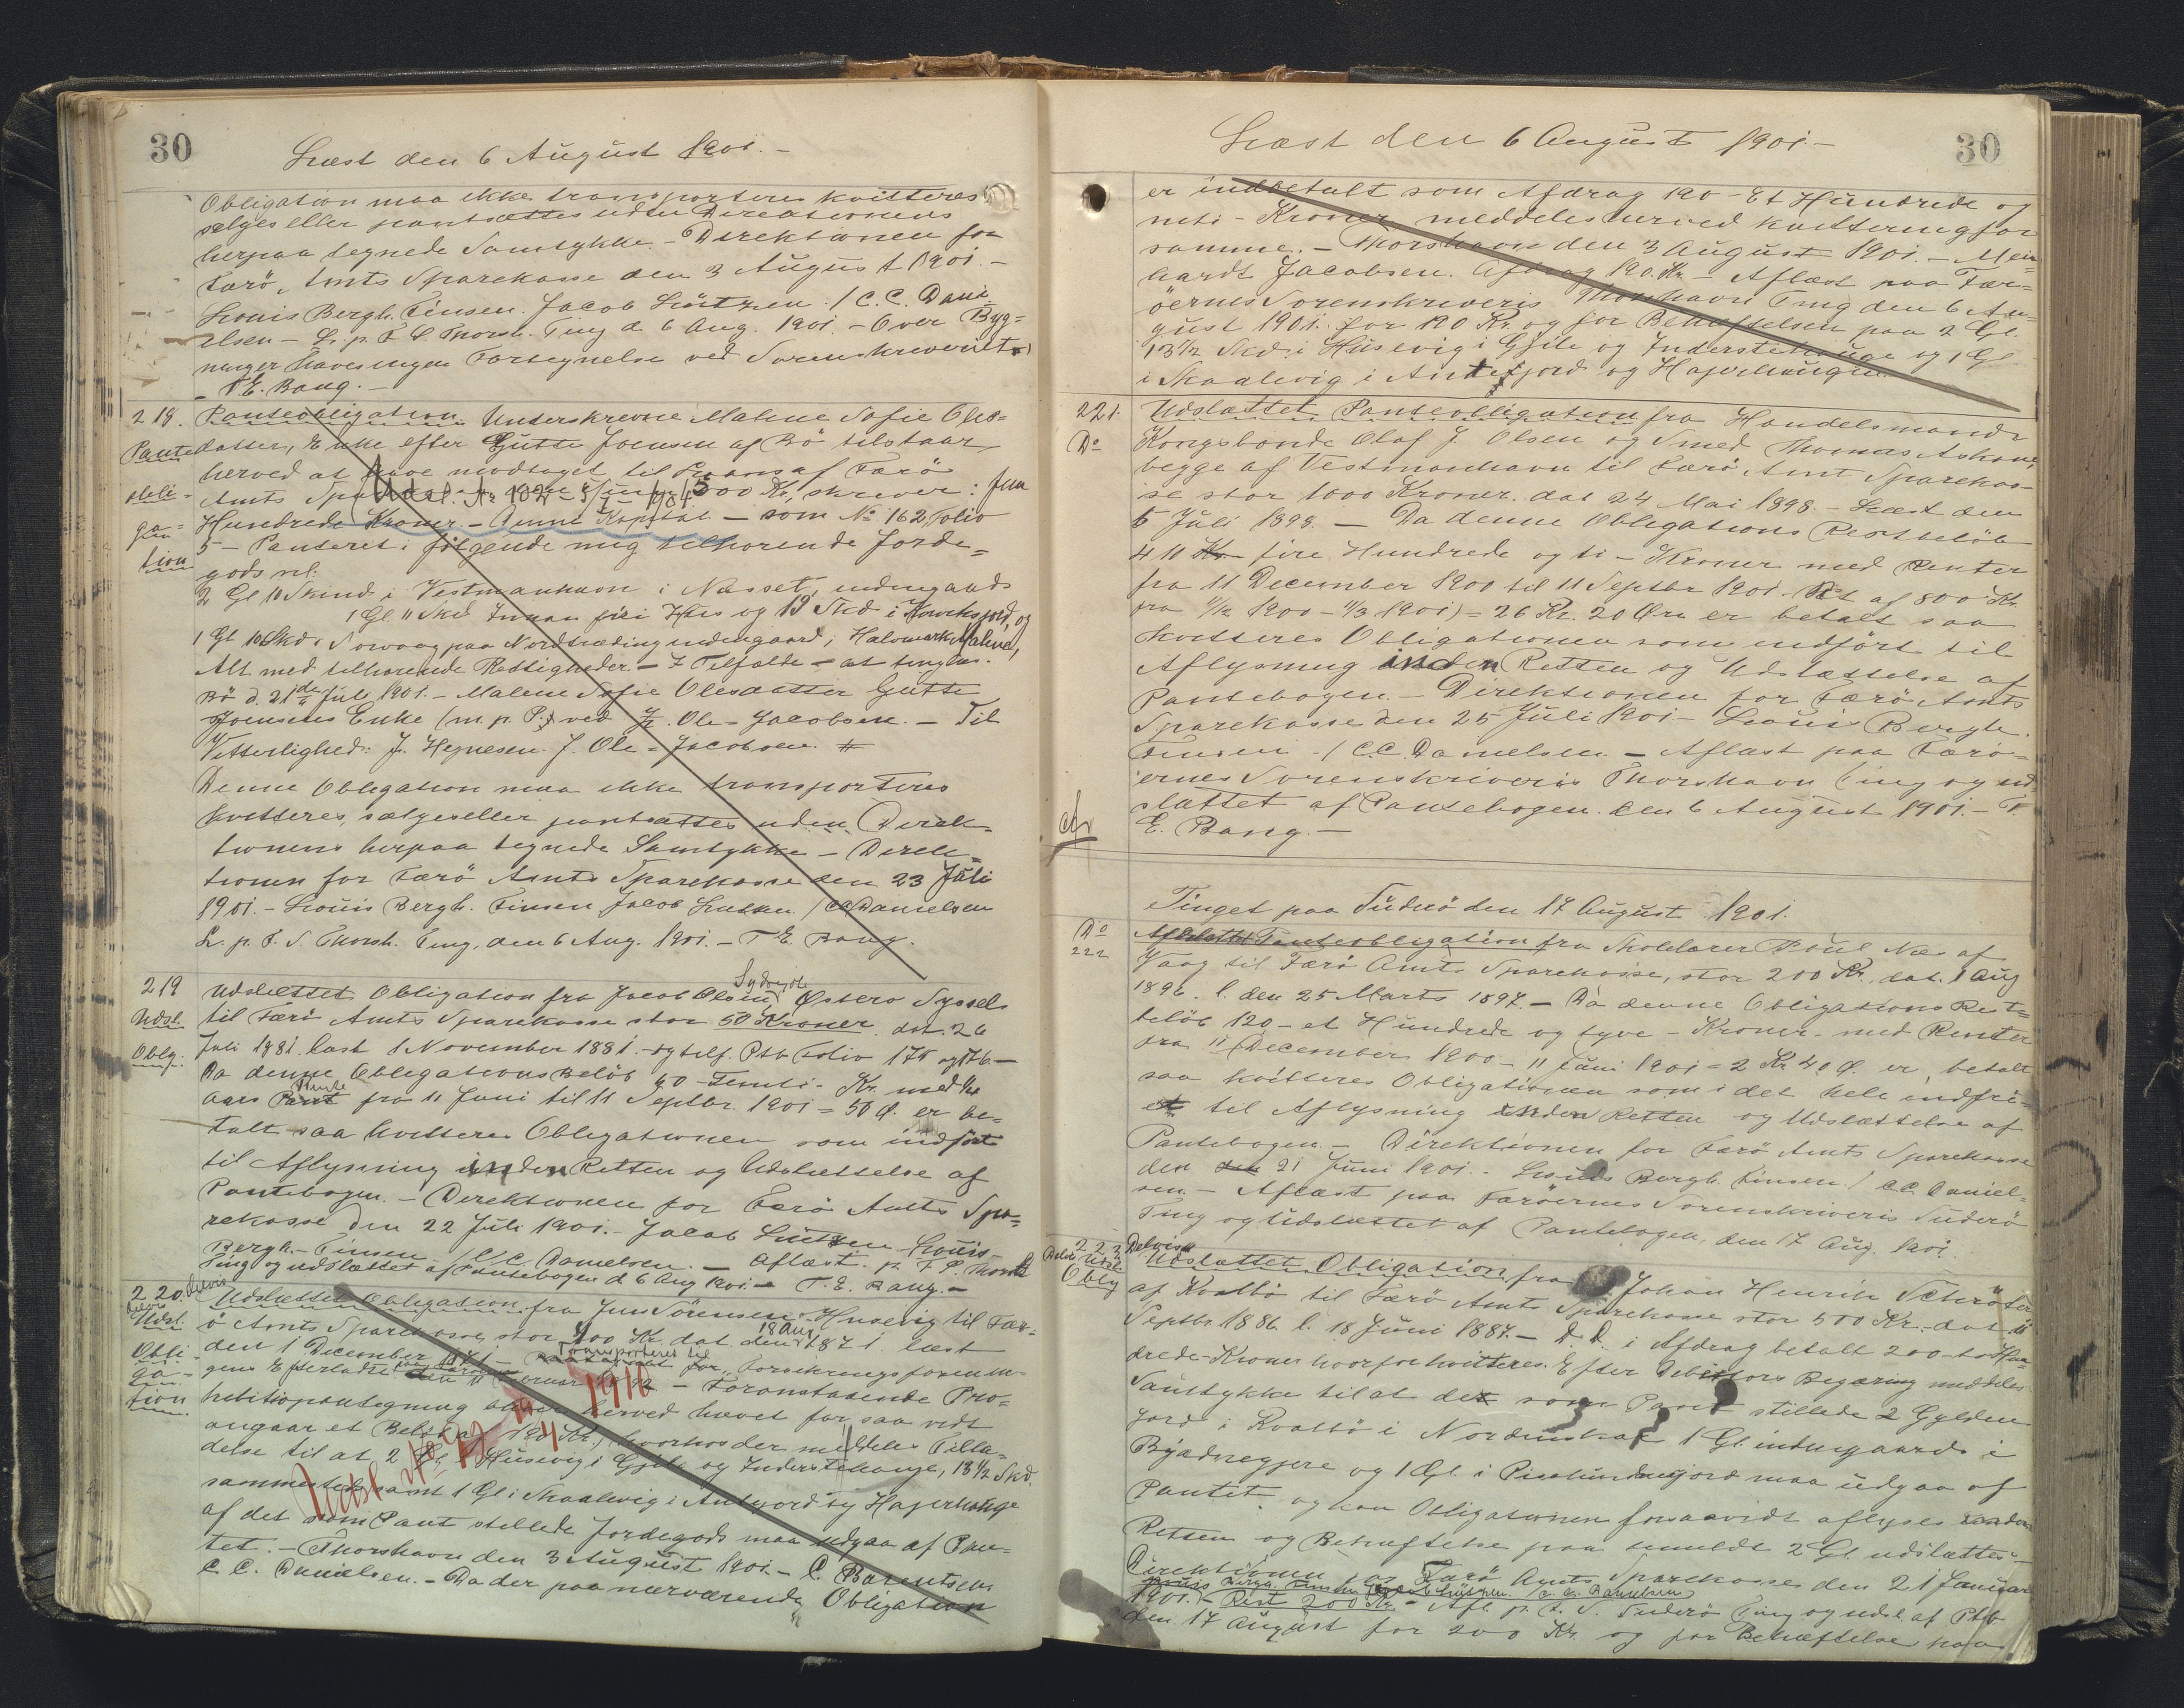 30
Læst den 6 August 1901.-
Obligation maa ikke transporteres kvitteres
sælges eller pantsættes uden Direktionens
herpaa tegnede Samtykke. - Direktionen for
Færö Amts Sparekasse den 3 August 1901.-
Louis Bergh. Finsen. Jacob Lützen. / C. C. Dani-
elsen - L. p. F. S. Thorsh. Ting d. 6 Aug. 1901. - Over Byg=
ninger haves ingen Fortegnelse ved Sorenskriveriet.
- T. E. Bang. -
218. Panteobligation. Underskrevne Malene Sofie Oles=
Pante datter, Enke efter Gutte Joensen af Bö tilstaar
herved at have modtaget til Laans af Færö
obli- Amts 500 Kr, skriver: fem
Udsl. No 182 - 5/
ga= Hundrede Kroner. - Denne Kapital - som No 162, Folio
tion 5 - Panteret i fölgende mig tilhorende Jorde=
gods nl:
2 Gl 10 Skind i Vestmanhavn i Næsset, indengaards
1 Gl 11 Skd Innan firi Hus og 19 Skd i og
1 Gl 10 Skd i Sorvaag paa Nordtræding indengaard, Halvmark Malene,
Alt med tilhorende Rettigheder. - I Tilfælde - at tinglæs.
Bö d. 21de Juli 1901. - Malene Sofie Olesdatter Gutte
Joensens Enke (m. p. P.) ved J. Ole= Jacobsen. - Til
Vitterlighed: J. Hejnesen. J. Ole= Jacobsen. #
Denne Obligation maa ikke transporteres
kvitteres, sælges eller pantsættes uden Direk=
tionens herpaa tegnede Samtykke - Direk=
tionen for Færö Amts Sparekasse den 23 Juli
1901. - Louis Bergh. Finsen Jacob Lutzen / CC Danielsen
L. p. F. S. Thorsh. Ting, den 6 Aug. 1901. - T. E. Bang.
219 Udslettet Obligation fra Jacob Olsen, Østero Syssel
Udsl. til Færö Amts Sparekasse stor 50 Kroner dat. 26
Oblg. Juli 1881. læst 1 November 1881. - og Ptb Folio 175 og 176. -
Da denne Obligations Belöb 50 - Femti - Kr. med 1/4
Aars Rente fra 11 Juni til 11 Septbr. 1901 = 50 Ø. er be=
talt saa kvitteres Obligationen som indfört
til Aflysning inden Retten og Udslettelse af
Pantebogen. - Direktionen for Færö Amts Spa=
rekasse den 22 Juli 1901. - Jacob Lützen Louis
Bergh. - Finsen / C. C. Danielsen. - Aflæst. p. F. S. Thorsh
Ting og udslættet af Pantebogen d. 6 Aug 1901. - T. E. Bang. -
220. Delvis Udslettet Obligation fra Jens Sörensen Husevig til Fær=
Udsl. ö Amts Sparekasse, stor 400 Kr. dat. den 18 Aug 1871. læst
Obli- den 1 December 1871 - Transporteret til Forsikringsforenin
ga- gens Efterladte den 11 Februar - Foranstaaende Pro=
tion hibitionpaategning bliver herved hævet for, saa vidt
angaar et Belöb af 190 Kr, hvorhos der meddeles Tilla=
delse til at 2 Gl. i Husevig i Gjile og Inderstehauge, 13 1/2 Skd.
sammesteds samt 1 Gl i Skaalevig i Antefjord og Hajerhauge
af det som Pant stillede Jordegods maa udgaa af Pan=
tet. - Thorshavn den 3 August 1901. - C. Bærentsen
C. C. Danielsen. - Da der paa nærværende Obligation
Udsl 1916
30
Læst den 6 August 1901. -
er indbetalt som Afdrag 190 - Et Hundrede og
niti - Kroner meddeles herved kvittering for
samme. - Thorshavn den 3 August 1901. - Mein
hardt Jacobsen. Afdrag 190. Kr. - Aflæst paa Fær=
öernes Sorenskriveris Thorshavn Ting den 6 Au=
gust 1901. for 190 Kr. og for Behæftelsen paa 2 Gl.
13 1/2 Skd i Husevig i Gjile og Inderstehauge og 1 Gl
i Skaalevig i Antefjord og Hajerhaugen.
221. Udslættet Panteobligation fra Handelsmand
Do Kongsbonde Olaf J. Olsen og Smed Thomas
begge af Vestmanhavn til Færö Amt Sparekas-
se stor 1000 Kroner. dat 24 Mai 1898. - Læst den
5 Juli 1898. - Da denne Obligations Restbelöb
410 Kr fire Hundrede og ti - Kroner med Renter
fra 11 December 1900 til 11 Septbr 1901. - (Rt af 800 Kr.
fra 11/12 1900 - 11/3 1901) = 26 Kr. 20 Öre er betalt saa
kvitteres Obligationen som indfört til
Aflysning inden Retten og Udslættelse af
Pantebogen. - Direktionen for Færö Amts
Sparekasse den 25 Juli 1901. - Louis Bergh.
Finsen - / C. C. Danielsen. - Aflæst paa Færö=
ernes Sorenskriveris Thorshavn Ting og ud
slættet af Pantebogen. den 6 August 1901. - T.
E. Bang. -
Tinget paa Suderö den 17 August 1901.
Do 222 Afslettet Panteobligation fra Skolelærer Poul Næs af
Vaag til Færö Amts Sparekasse, stor 200 Kr., dat. 1 Aug
1896. l. den 25 Marts 1897. - Da denne Obligations Rest=
belöb 120 - et Hundrede og tyve - Kroner - med Renter
fra 11 December 1900 - 11 Juni 1901 = 2 Kr 40 Ø. er betalt
saa kvitteres Obligationen som i det hele indfri=
et til Aflysning inden Retten og Udslættelse af
Pantebogen. - Direktionen for Færö Amts Sparekasse
den 21 Juni 1901. - Louis Bergh. Finsen. / C. C. Daniel=
sen. - Aflæst paa Færöernes Sorenskriveris Suderö
Ting og Udslættet af Pantebogen, den 17 Aug. 1901.
223 Delvis Udslættet Obligation fra Johan Henrik Schröter
Delvis Udsl. Oblg af Kvalbö til Færö Amts Sparekasse stor 500 Kr. - dat 11
Septbr 1886 l. 18 Juni 1887. - D. D. i Afdrag betalt 200 - to Hun
drede - Kroner hvorfor kvitteres. Efter Debitors Begæring meddeles
Samtykke til at det som Pant stillede 2 Gylden
Jord i Kvalbö i 1 Gl indengaards i
og 1 Gl. i maa udgaa af
Pantet og kan Obligationen forsaavidt aflyses inden
Retten og Behæftelse paa 2 Gl. udslættes. -
Direktionen for Færö Amts Sparekasse den 21 Januar
Louis Bergh. Finsen Jacob Lützen. C. C. Danielsen
1901. - Rest 200 Kr. - Afl. p. F. S. Suderö Ting og udsl. af Ptb
den 17 August for 200 Kr. og for Behæftelse paa